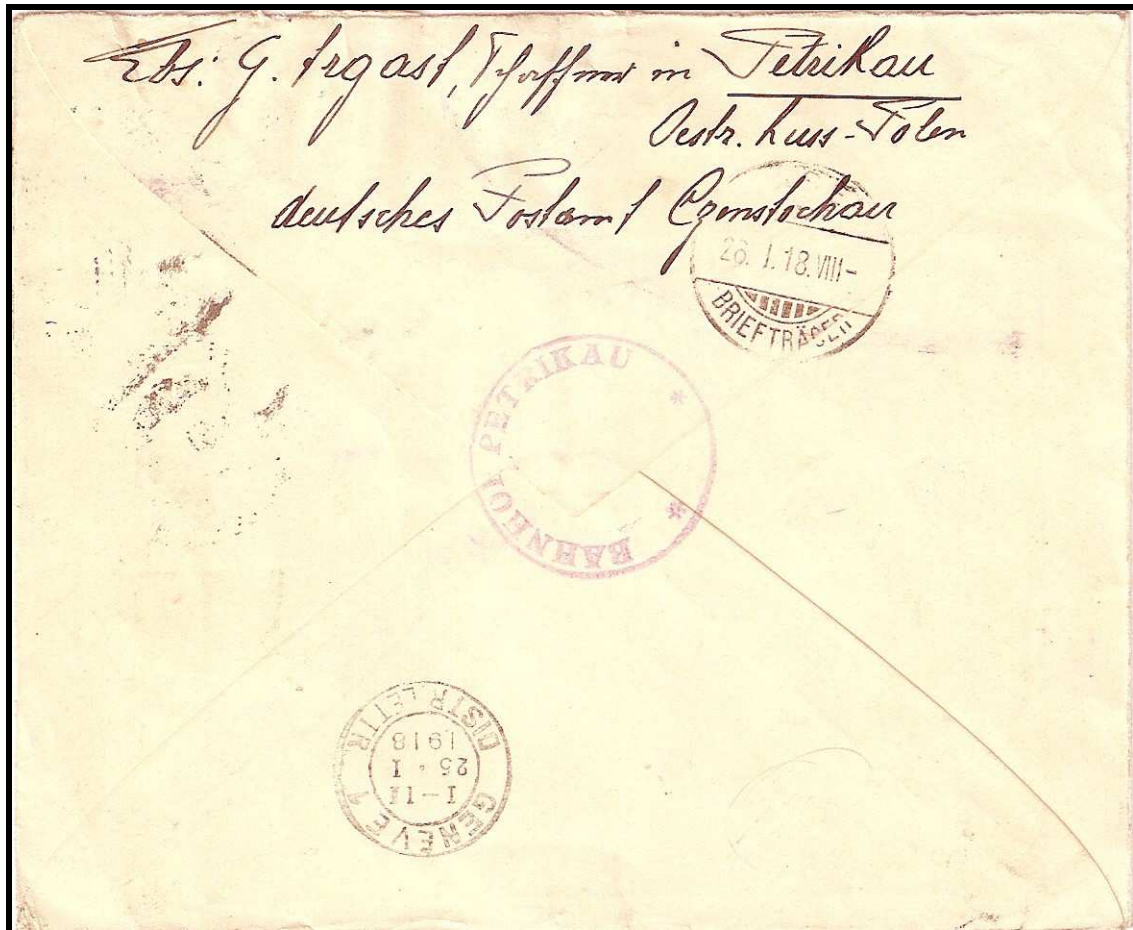 Ebs: G. Irgast, Schaffner in Petrikau
Oestr. Russ-Polen
deutsches Postamt Czenstochau
26. I. 18. VIII-
BRIEFTRÄGER
BAHNHOF PETRIKAU
* *
GENEVE 1
I-II
25 • I
1918
DISTR. LETTR